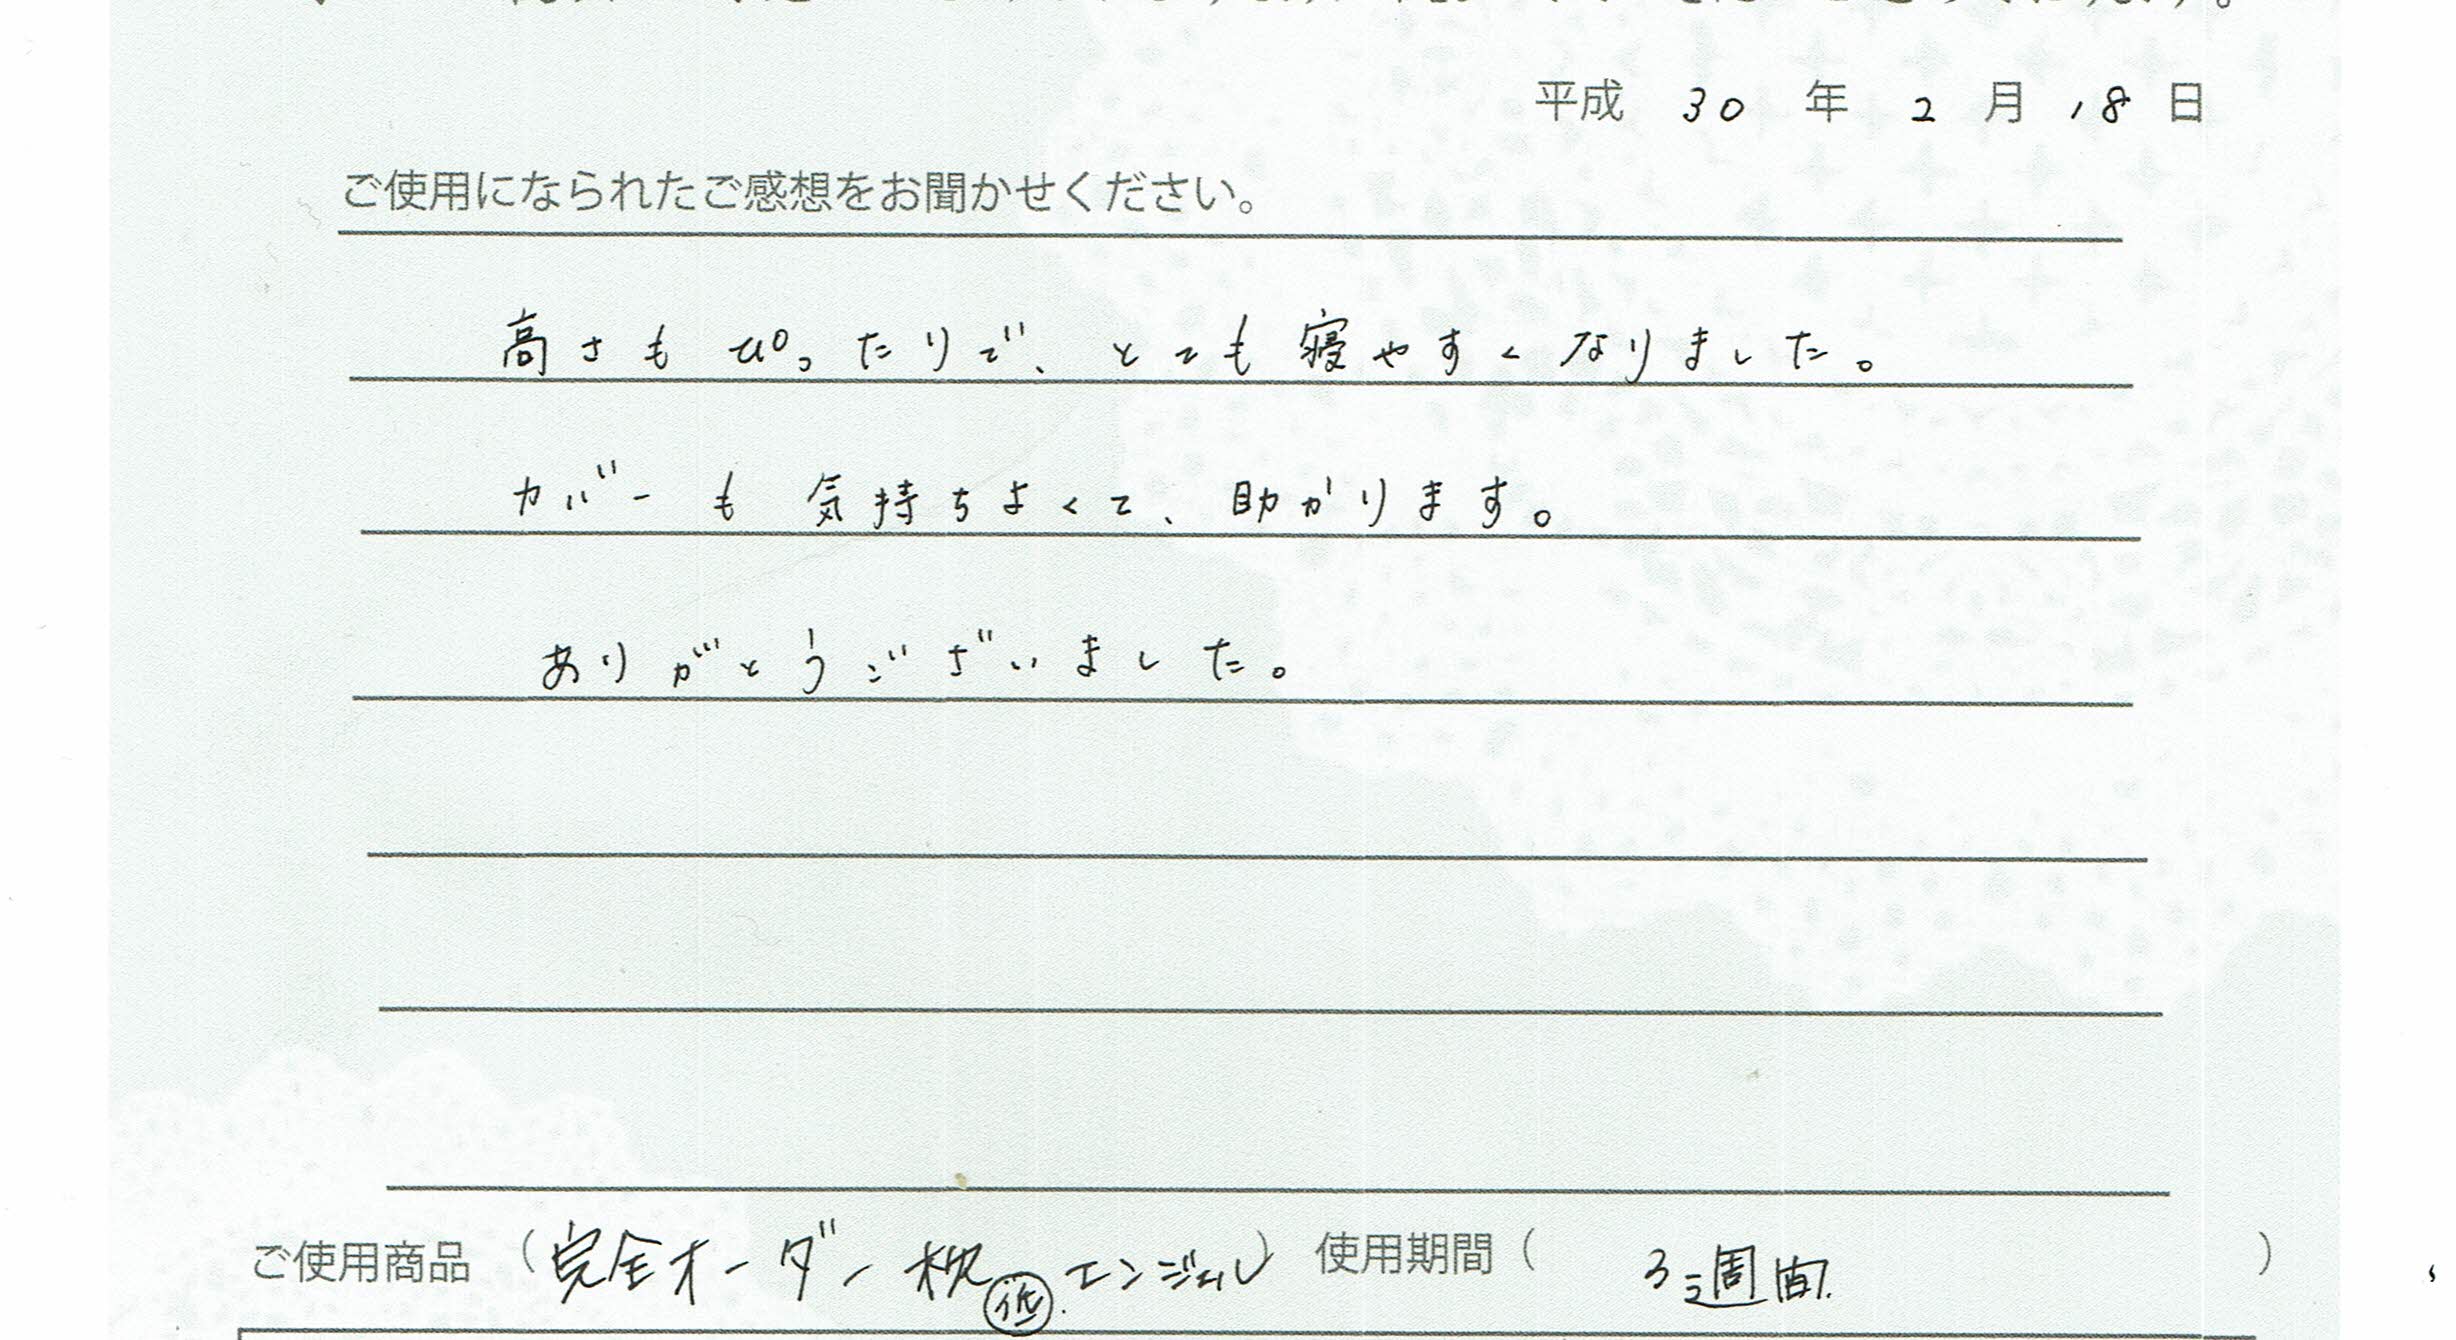 平成 30 年 2 月 18 日
ご使用になられたご感想をお聞かせください。
高さもぴったりで、とても寝やすくなりました。
カバーも気持ちよくて、助かります。
ありがとうございました。
ご使用商品 （完全オーダー枕 低 エンジェル） 使用期間（ 3週間. ）